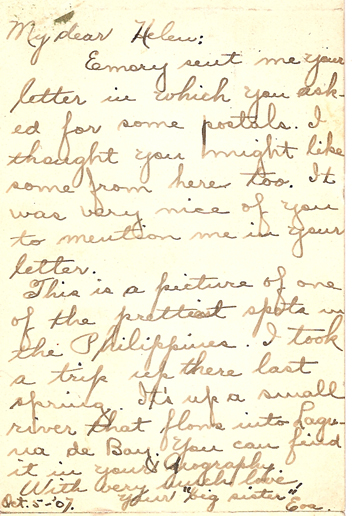 My dear Helen:
Emory sent me your
letter in which you ask-
ed for some postals. I
thought you might like
some from here too. It
was very nice of you
to mention me in your
letter.
This is a picture of one
of the prettiest spots in
the Philippines. I took
a trip up there last
spring. It's up a small
river that flows into Lagu-
na de Bay. You can find
it in your Geography.
With very much love,
Oct. 5-'07. your "big sister",
Eva.